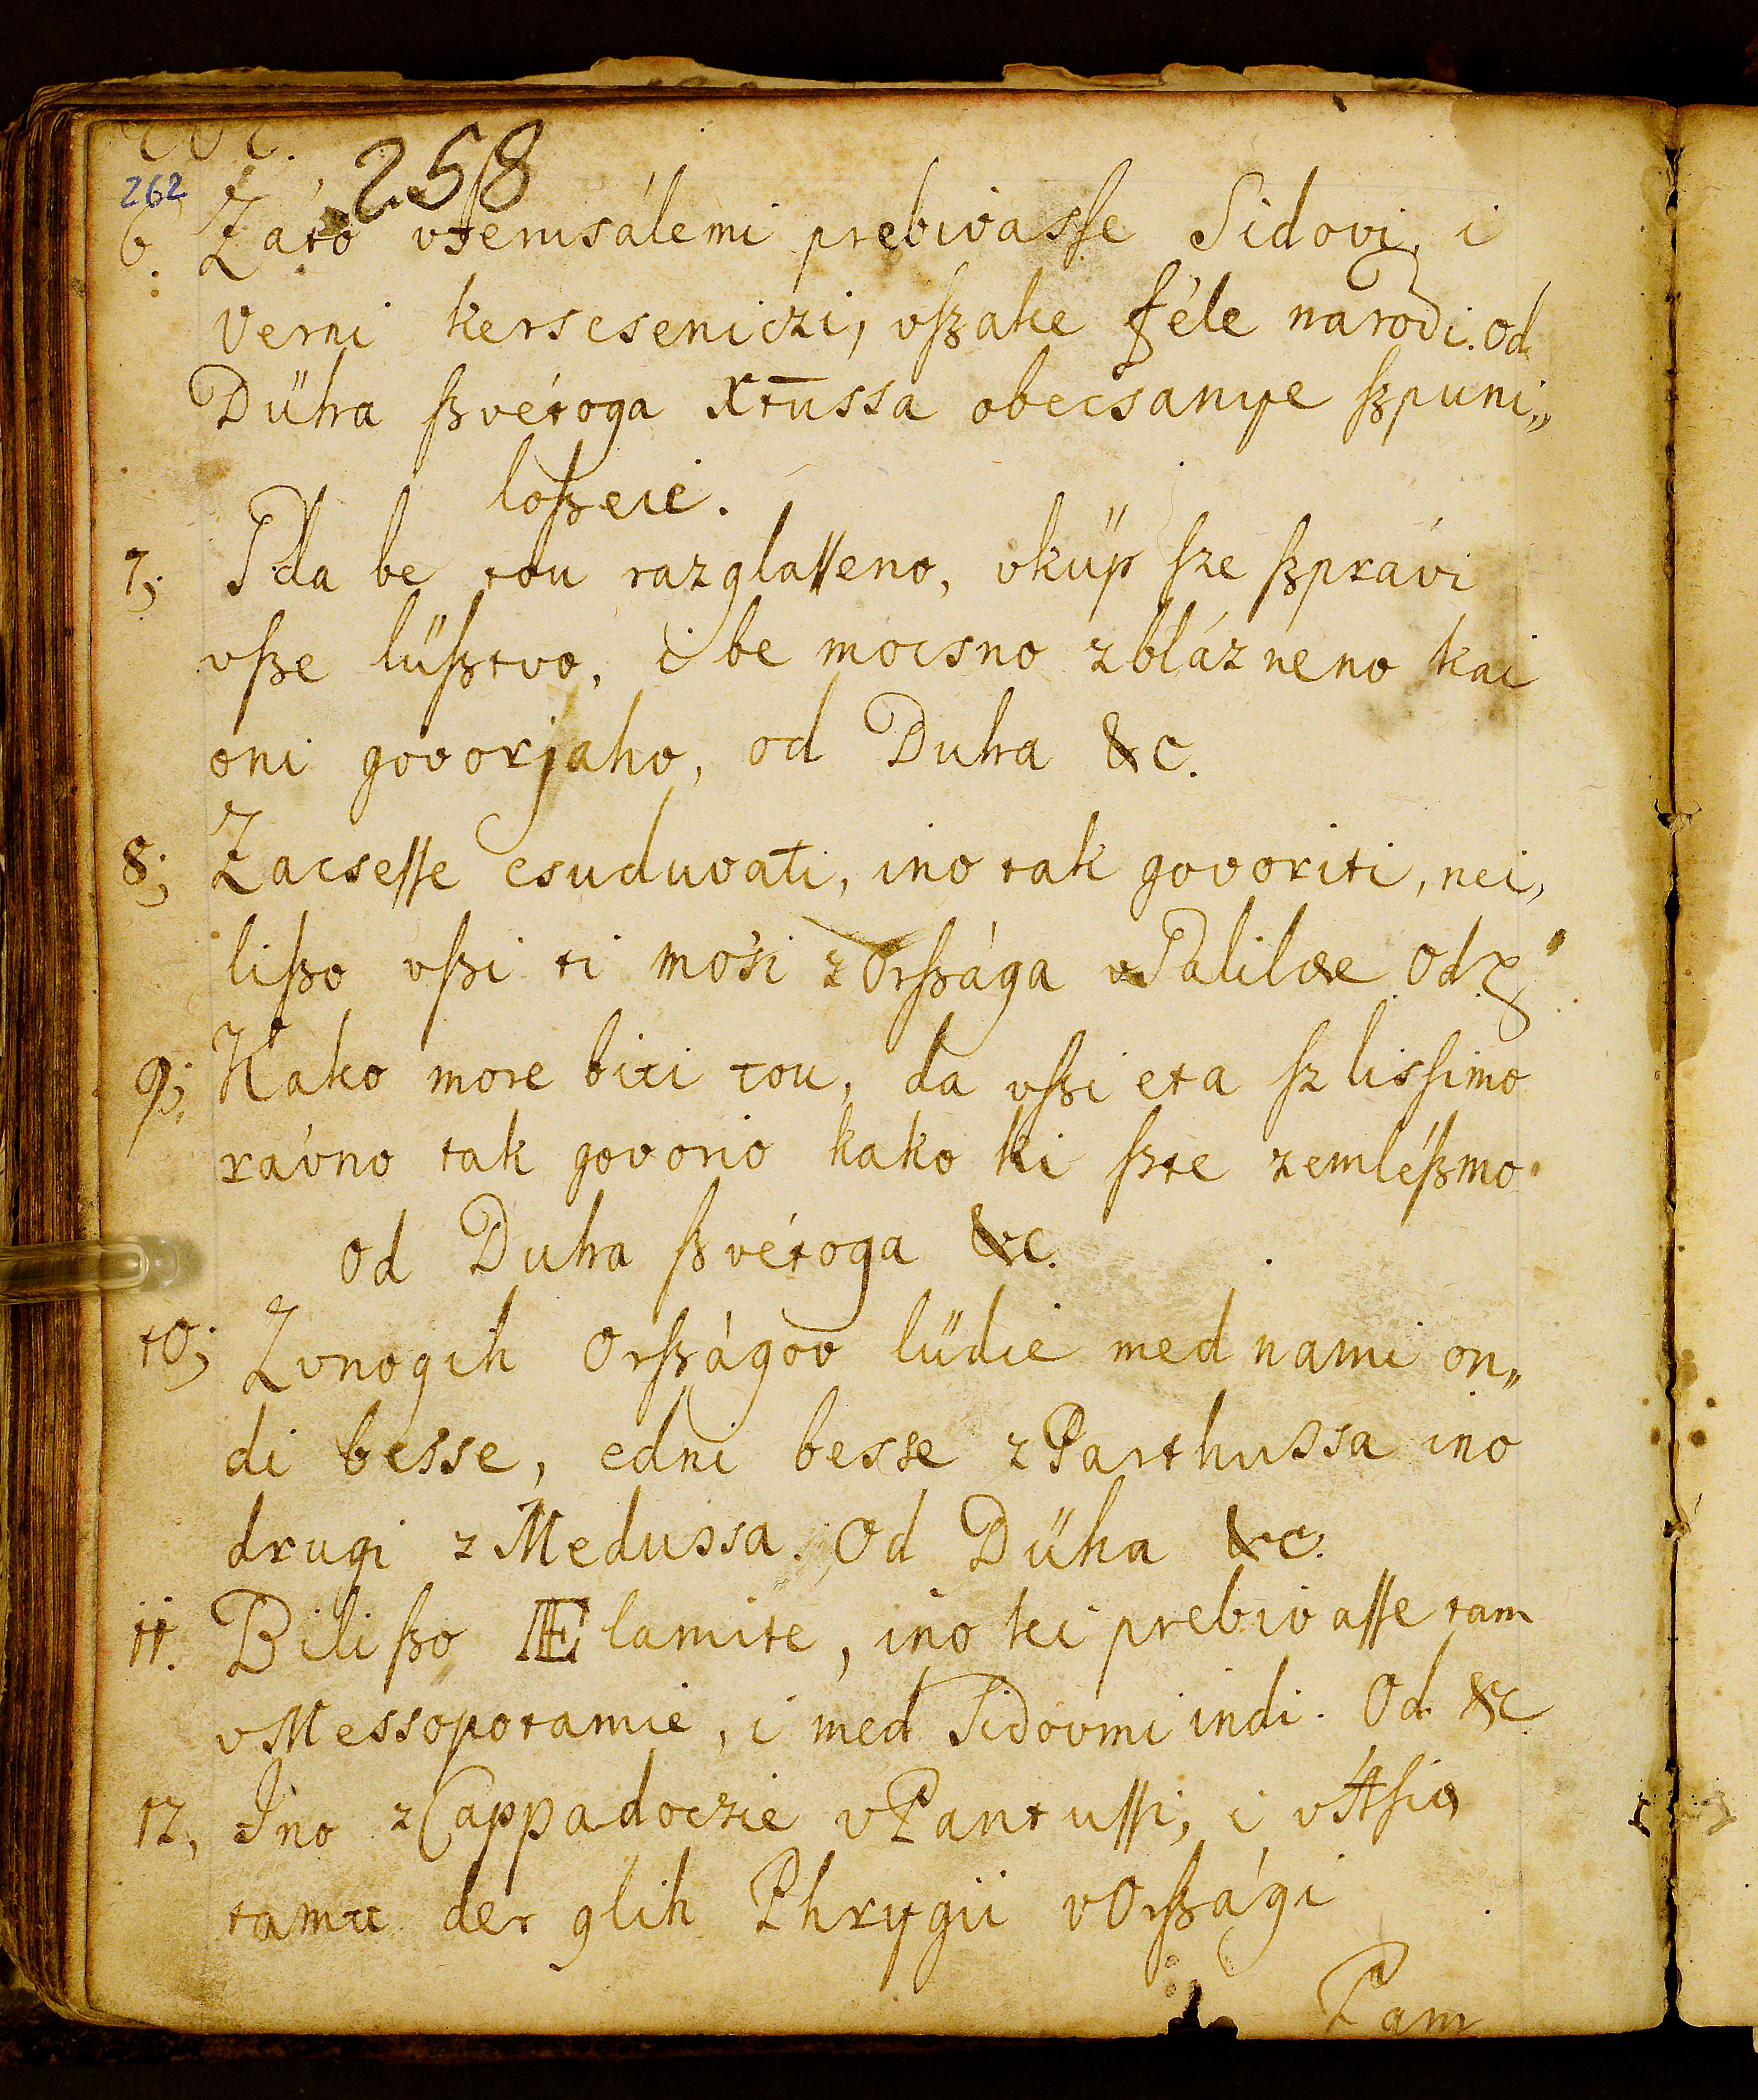 258
262
6. Záto vJerusálemi prebivasſe Sidovi, i
verni kerscseniczi, vſzake féle narodi. Od
Dűha ſzvétoga Xt̄ussa obecsanye ſzpuni„
loſzeie.
7; I da be tou razglaſſeno, vkűp ſze ſzprávi
vſze lűſztvo, i be mocsno zblázneno kai
oni govorjaho, od Duha &c.
8; Zacseſſe csuduvati, ino tak govoriti, nei,
liſzo vſzi ti mosi z Orſzága vGalilæe Od
9; Kako more biti tou, da vſzi eta ſzlisſimo
rávno tak govorio kako ki ſzte zemléſzmo
od Duha ſzvétoga &c.
10; Zvnogih Orſzágov lűdie med nami on„
di besse, edni besse z Parthussa ino
drugi z Medussa. Od Dűha &c.
11. Biliſzo Ælamite, ino ki prebivaſſe tam
vMessopotamie, i med Sidovmi indi. Od &c
12, Ino z Cappadoczie vPantuſſi, i vAſia
tamu der glih Phrygii vOrſzági
Pam